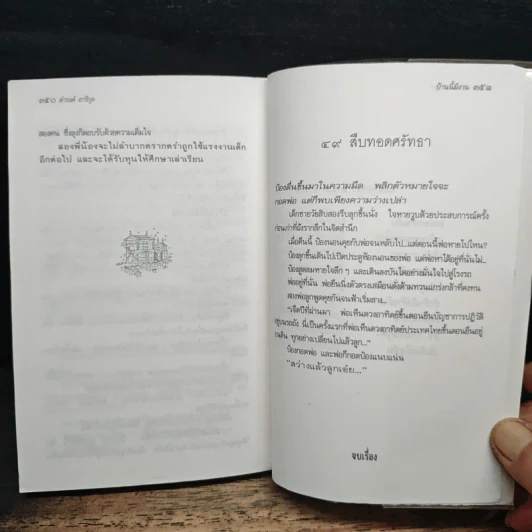 ๓๕๐ ดำรงค์ อารีกุล
สองคน ซึ่งลุงก็ตอบรับด้วยความเต็มใจ
สองพี่น้องจะไม่ลำบากตรากตรำถูกใช้แรงงานเด็ก
อีกต่อไป และจะได้รับทุนให้ศึกษาเล่าเรียน
บ้านนี้มีงาน ๓๕๑
๔๙ สืบทอดศรัทธา
ป้องตื่นขึ้นมาในความมืด พลิกตัวหมายใจจะ
กอดพ่อ แต่ก็พบเพียงความว่างเปล่า
เด็กชายวัยสิบสองรีบลุกขึ้นนั่ง ใจหายวูบด้วยประสบการณ์ครั้ง
ก่อนเก่าที่ฝังรากลึกในจิตสำนึก
เมื่อคืนนี้ ป้องนอนคุยกับพ่อจนหลับไป...แต่ตอนนี้พ่อหายไปไหน?
ป้องลุกขึ้นเดินไปเปิดประตูห้องนอนของพ่อ แต่พ่อหาได้อยู่ที่นั่นไม่..
ป้องสูดลมหายใจลึก ๆ และเดินลงบันไดอย่างมั่นใจไปสู่โรงรถ
พ่ออยู่ที่นั่น พ่อยืนนิ่งตัวตรงเสมือนดั่งด้ามทวนแกร่งกล้าที่คงทน
สองพ่อลูกพูดคุยกันจนฟ้าเริ่มสาง...
"เจ็ดปีที่ผ่านมา พ่อเห็นดวงอาทิตย์ขึ้นตอนยืนบัญชาการปฏิวัติ
อยู่บนรถถัง นี่เป็นครั้งแรกที่พ่อเห็นดวงอาทิตย์ประเทศไทยขึ้นตอนยืนอยู่
บนดิน ทุกอย่างเปลี่ยนไปแล้วลูก..."
ป้องกอดพ่อ และพ่อก็กอดป้องแนบแน่น
"สว่างแล้วลูกเอ๋ย..."
จบเรื่อง